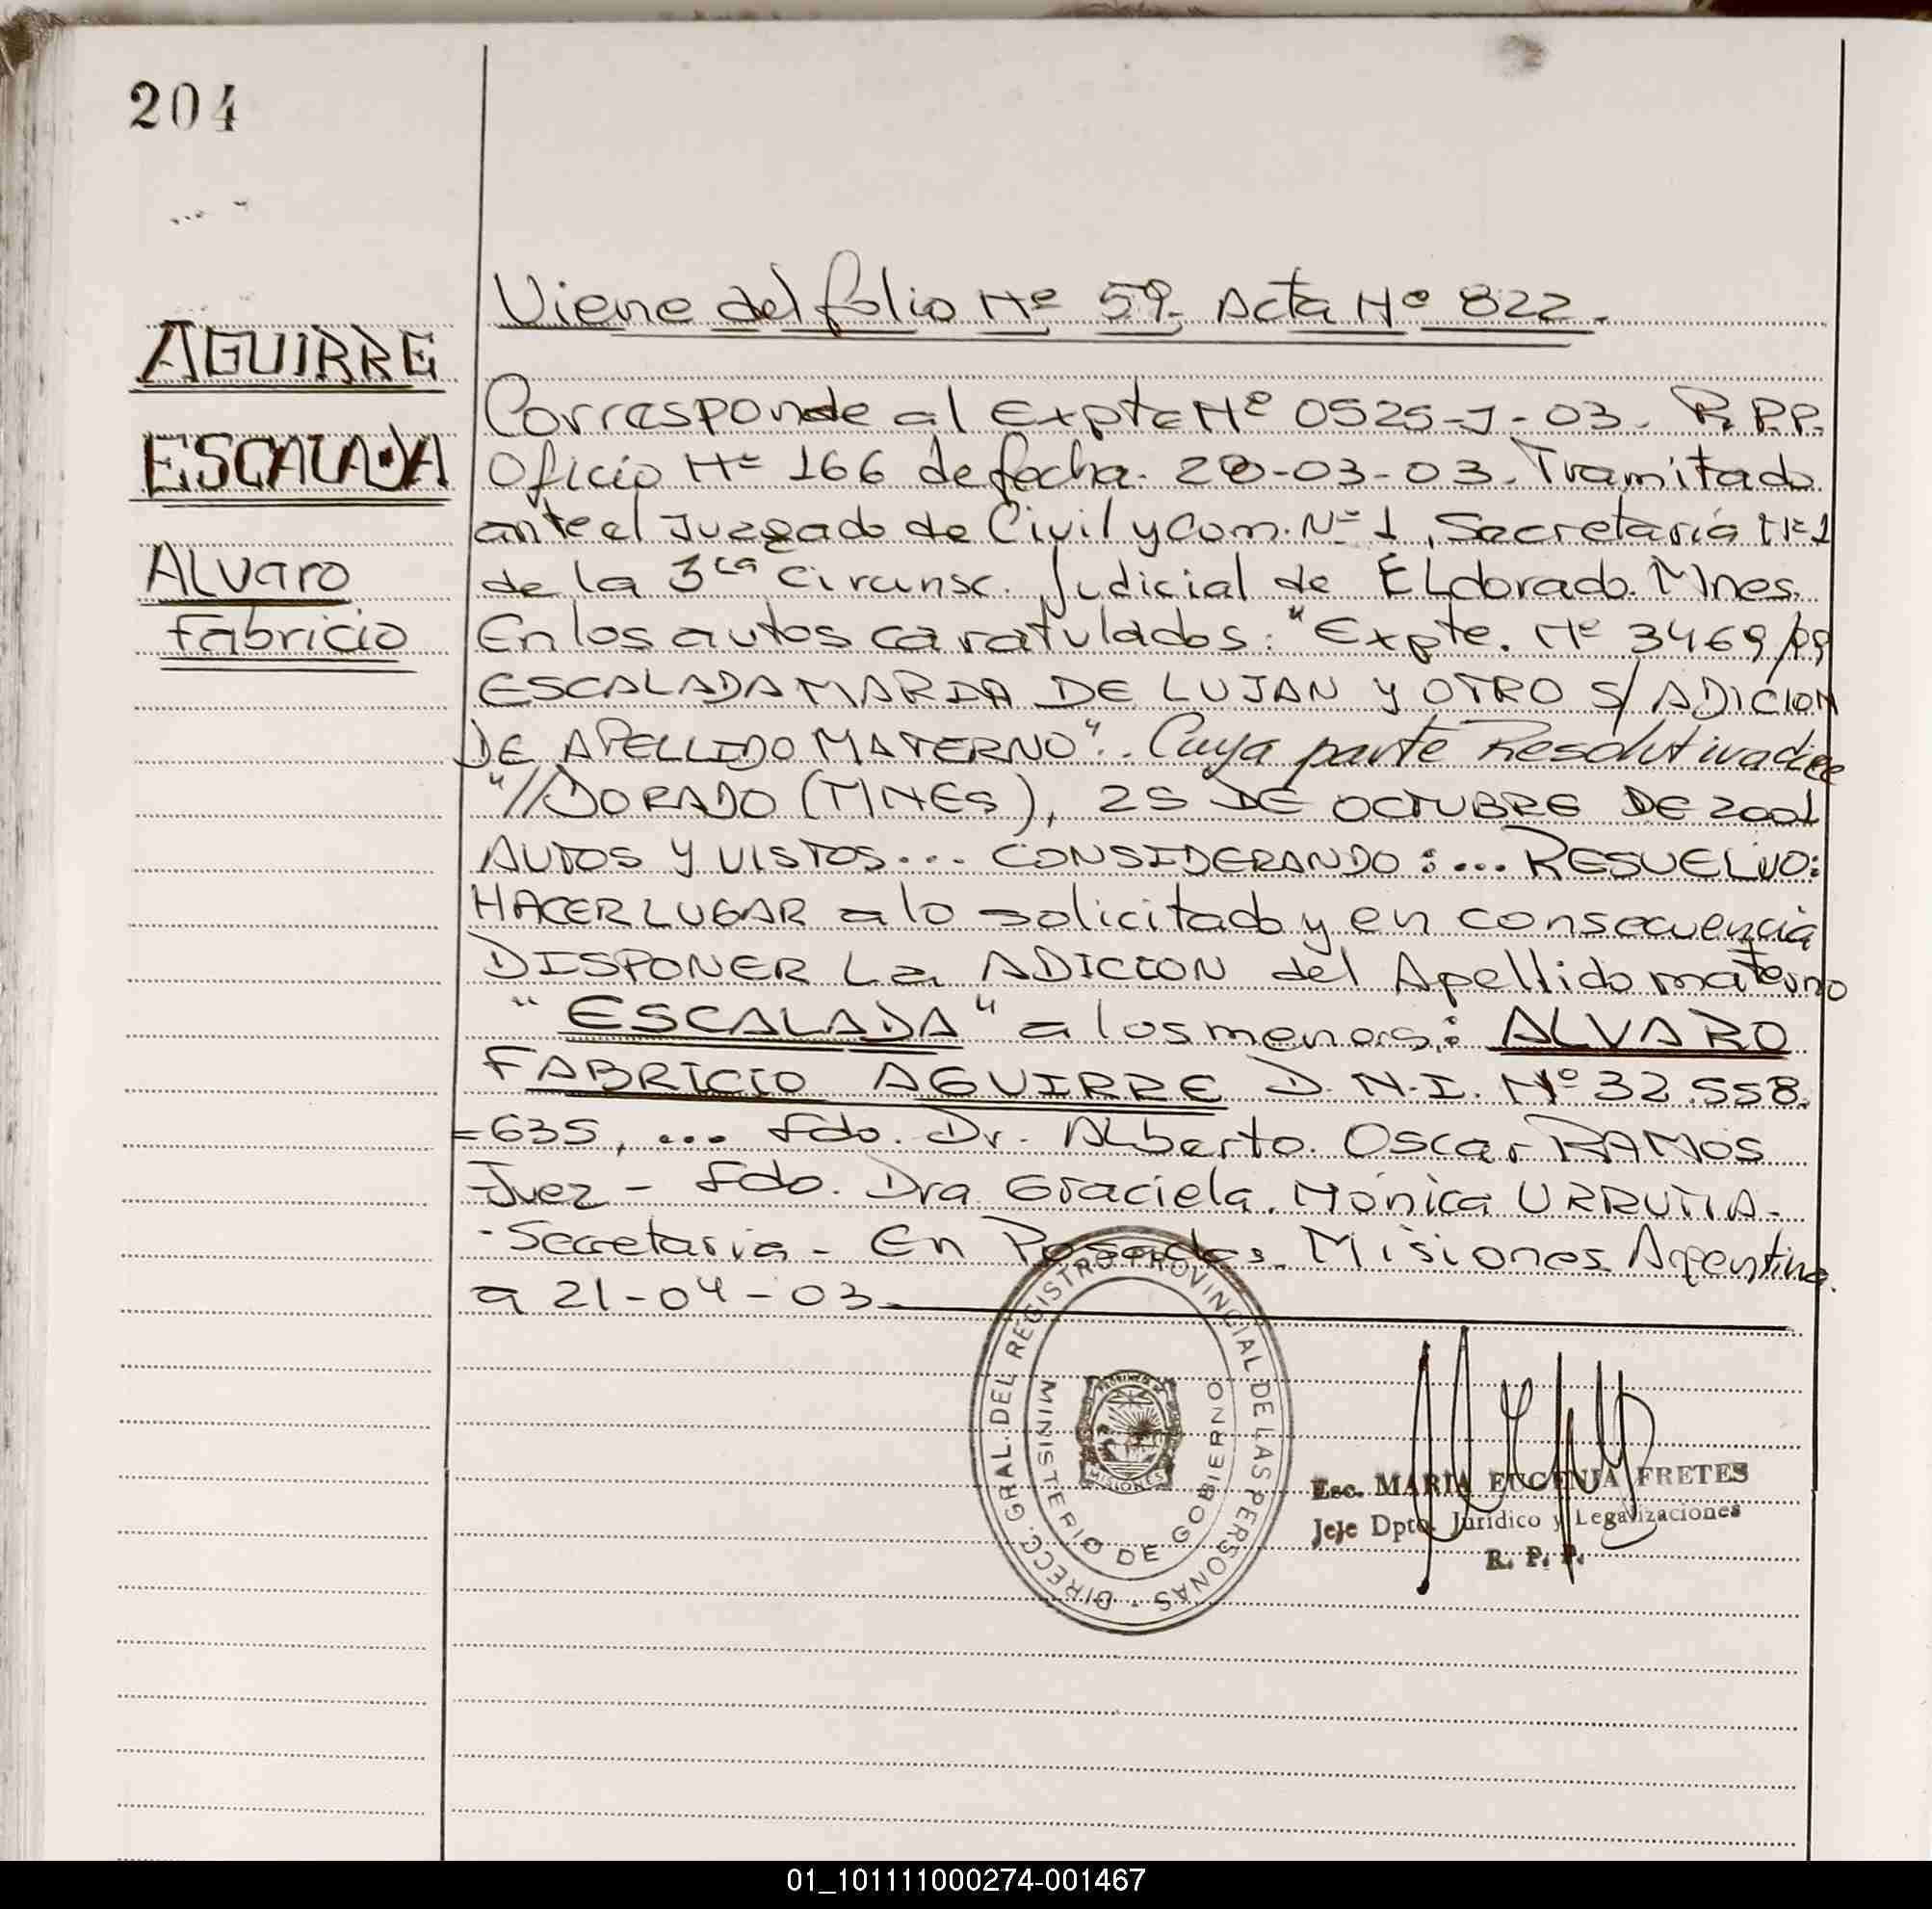 204
Viene del folio Nº 59. Acta Nº 822.
AGUIRRE
ESCALADA
Alvaro
Fabricio
Corresponde al Expte Nº 0525-J-03. R.P.P.
Oficio Nº 166 de fecha. 28-03-03. Tramitado
ante el Juzgado de Civil y Com. Nº 1, Secretaría Nº 1
de la 3ra Circunsc. Judicial de ELdorado. Mnes.
En los autos caratulados: "Expte. Nº 3469/99
ESCALADA MARIA DE LUJAN Y OTRO S/ADICION
DE APELLIDO MATERNO".. Cuya parte Resolutiva dice
"//DORADO (MNES), 25 DE OCTUBRE DE 2001
AUTOS Y VISTOS... CONSIDERANDO:... RESUELVO:
HACER LUGAR a lo solicitado y en consecuencia
DISPONER La ADICION del Apellido materno
"ESCALADA" a los menores: ALVARO
FABRICIO AGUIRRE D.N.I. Nº 32.558.
=635, ... Fdo. Dr. ALberto. Oscar RAMOS
Juez - Fdo. Dra Graciela. Mónica URRUTIA-
-Secretaria- En Posadas. Misiones Argentina.
a 21-04-03.
DIRECC. GRAL. DEL REGISTRO PROVINCIAL DE LAS PERSONAS -
MINISTERIO DE GOBIERNO
MISIONES
Esc. MARIA EUGENIA FRETES
Jefe Dpto. Jurídico y Legalizaciones
R. P. P.
01_101111000274-001467